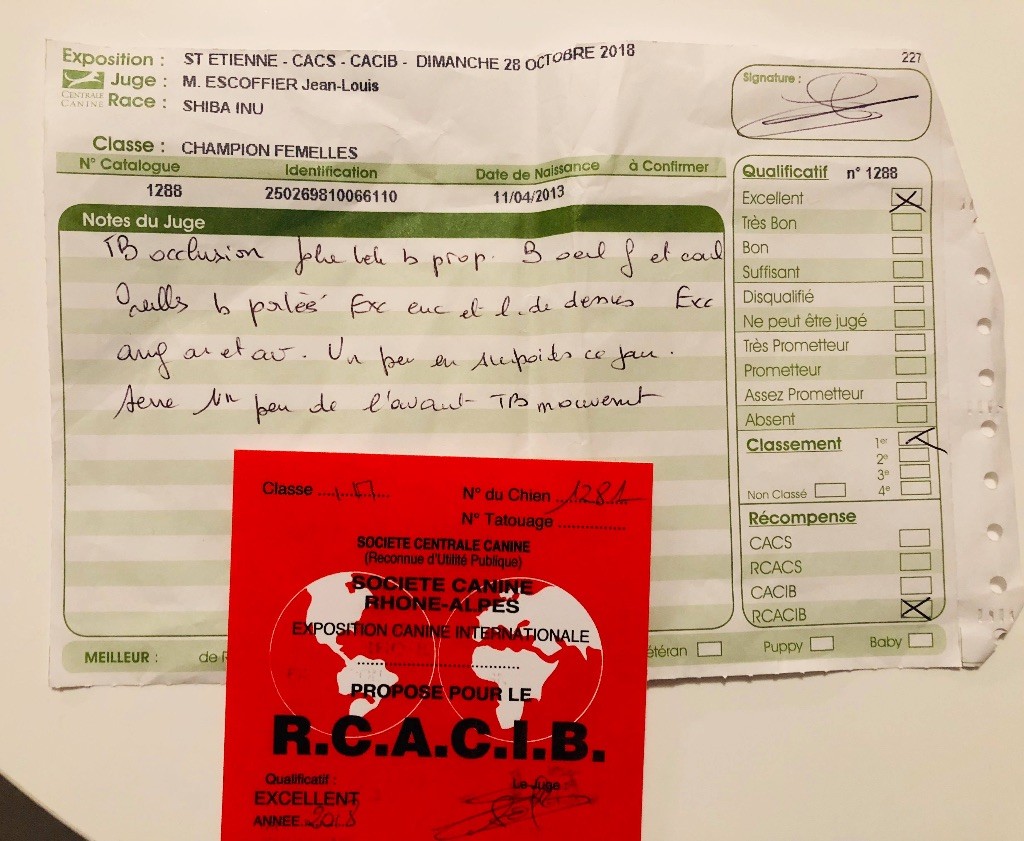 Exposition : ST ETIENNE - CACS - CACIB - DIMANCHE 28 OCTOBRE 2018
227
CENTRALE CANINE
Juge : M. ESCOFFIER Jean-Louis
Race : SHIBA INU
Signature :
Classe : CHAMPION FEMELLES
N° Catalogue Identification Date de Naissance à Confirmer
1288 250269810066110 11/04/2013
Notes du Juge
TB occlusion Jolie tete b prop. B oeil f et coul
Oreilles b portées Exc enc et l. de dessus Exc
ang ar et av. Un peu en ce jour.
serré un peu de l'avant TB mouvement
Qualificatif n° 1288
Excellent X
Très Bon
Bon
Suffisant
Disqualifié
Ne peut être jugé
Très Prometteur
Prometteur
Assez Prometteur
Absent
Classement 1er
2e
3e
Non Classé 4e
Récompense
CACS
RCACS
CACIB
RCACIB X
MEILLEUR : de R
étéran Puppy Baby
Classe
N° du Chien 1281
N° Tatouage
SOCIETE CENTRALE CANINE
(Reconnue d'Utilité Publique)
SOCIETE CANINE
RHONE-ALPES
EXPOSITION CANINE INTERNATIONALE
PROPOSE POUR LE
R.C.A.C.I.B.
Qualificatif :
EXCELLENT
ANNEE 2018
Le Juge